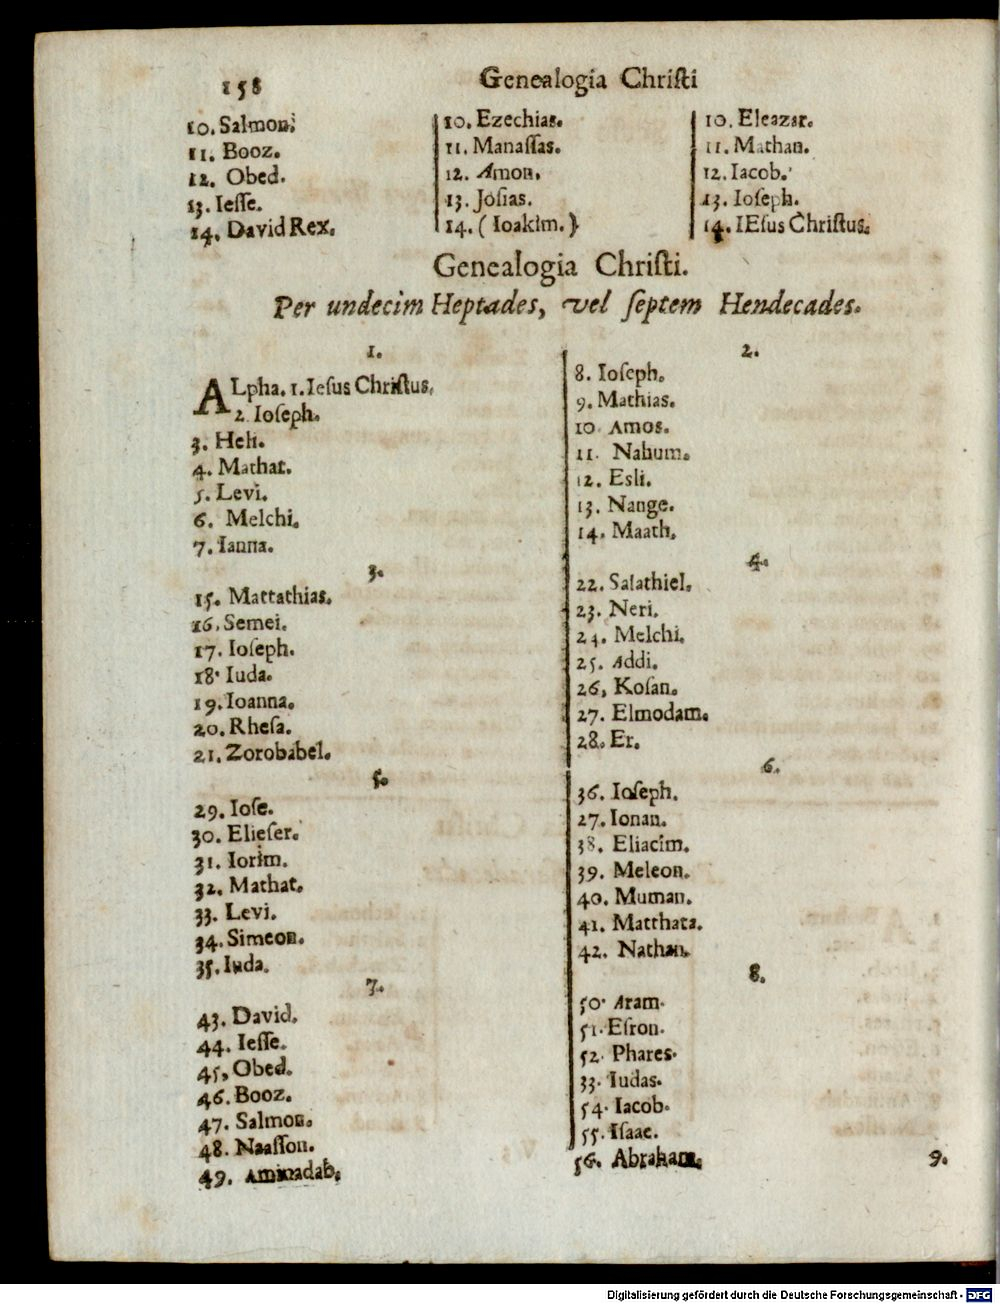 158
Genealogia Christi
10. Salmon.
11. Booz.
12. Obed.
13. Iesse.
14. David Rex.
10. Ezechias.
11. Manasſas.
12. Amon.
13. Josias.
14. ( Ioakim. )
10. Eleazar.
11. Mathan.
12. Iacob.
13. Ioseph.
14. IEsus Christus.
Genealogia Christi.
Per undecim Heptades, vel septem Hendecades.
1.
ALpha. 1. Iesus Christus.
2. Ioseph.
3. Heli.
4. Mathat.
5. Levi.
6. Melchi.
7. Ianna.
2.
8. Ioseph.
9. Mathias.
10. Amos.
11. Nahum.
12. Esli.
13. Nange.
14. Maath.
3.
15. Mattathias.
16. Semei.
17. Ioseph.
18. Iuda.
19. Ioanna.
20. Rhesa.
21. Zorobabel.
4.
22. Salathiel.
23. Neri.
24. Melchi.
25. Addi.
26, Kosan.
27. Elmodam.
28. Er.
5.
29. Iose.
30. Elieser.
31. Iorim.
32. Mathat.
33. Levi.
34. Simeon.
35. Iuda.
6.
36. Ioseph.
27. Ionan.
38. Eliacim.
39. Meleon.
40. Muman.
41. Matthata.
42. Nathan.
7.
43. David.
44. Iesse.
45, Obed.
46. Booz.
47. Salmon.
48. Naasson.
49. Aminadab.
8.
50. Aram.
51. Esron.
52. Phares.
33. Iudas.
54. Iacob.
55. Isaac.
56. Abraham.
9.
Digitalisierung gefördert durch die Deutsche Forschungsgemeinschaft - DFG